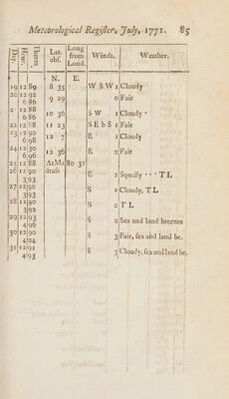 Meteorological Register, July, 1771. 85
Day. Hour. Therm Lat. obs. Long from Lond. Winds. Weather.
N. E.
19 12 89 8 35 W S W 1 Cloudy
20 12 92 9 29 0 Fair
6 86
2 12 88 10 36 S W 1 Cloudy
6 86
22 12 88 11 23 S E b S 1 Fair
23 12 90 12 7 E 1 Cloudy
6 98
24 12 30 12 36 E 2 Fair
6 96
25 12 88 At Ma 80 3
26 12 90 drass E 2 Squally T L
3 93
27 12 90 S 2 Cloudy, T L
3 93
28 12 90 S 2 T L
3 92
29 12 93 S 2 Sea and land breezes
4 96
30 12 90 S 3 Fair, sea and land br.
4 94
31 12 91 S 3 Cloudy, sea and land br.
4 93